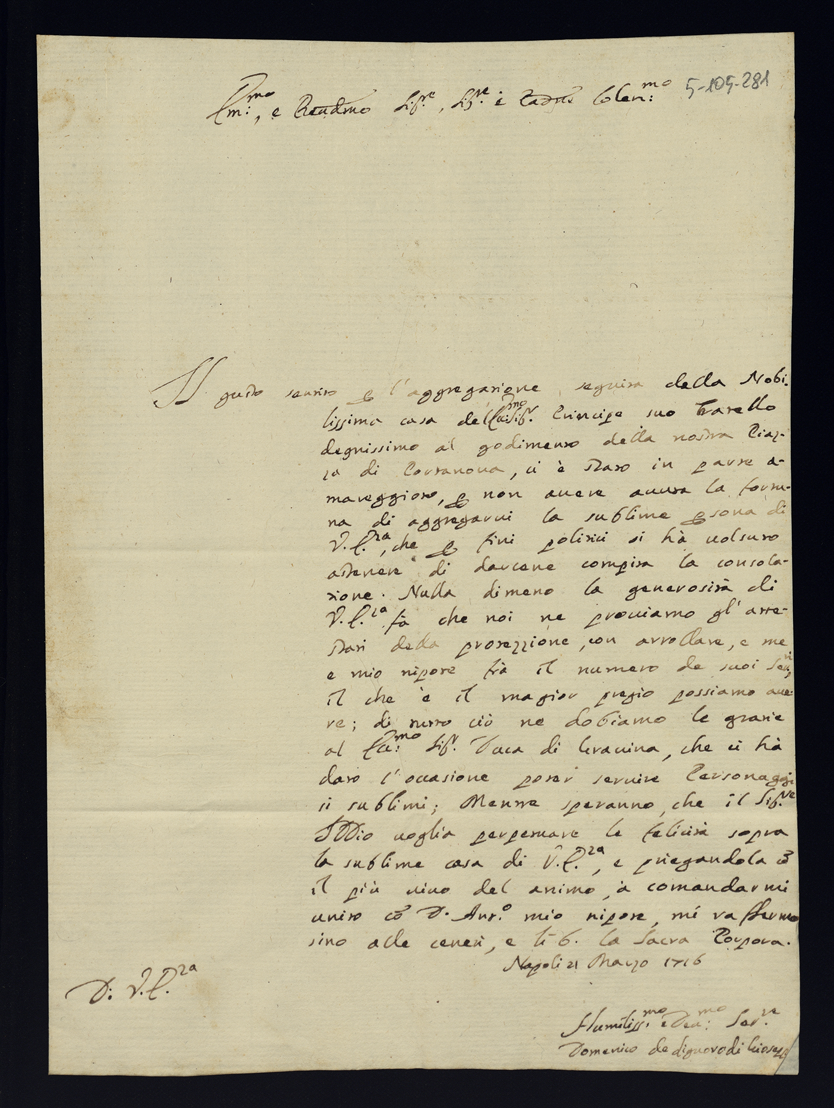 5-105-281
Em:mo, e Reudmo Sig.re, Sig.re e Padre Colen:mo
Il gusto sentito p l'aggregazione seguita della Nobi-
lissima casa dell'Ecc:mo Sig.r Principe suo fratello
degnissimo al godimento della nostra Piaz-
za di Portanova, ci è stato in parte a-
mareggiato, p non avere avuta la fortu-
na di aggregarvi la sublime psona di
V.E.za, che p fini politici si hà uolsuto
astenere di darcene compita la consola-
zione. Nulla dimeno la generosità di
V.E.za fà che noi ne prouiamo gl'atte-
stati della protezzione, con arrollare, e me
e mio nipote frà il numero de suoi Seri,
il che è il magior pregio possiamo aue-
re; di tutto ciò ne dobiamo le grazie
al Ecc:mo Sig.r Duca di Grauina, che ci hà
dato l'occasione poter seruire Personaggi
si sublimi; Mentre speranno, che il Sig.re
Iddio uoglia perpetuare le felicità sopra
la sublime casa di V.E.za, e priegandola cō
il più uiuo del animo, à comandarmi
unito cō D. Ant.o mio nipote, mi raffermo
sino alle ceneri, e li b. la Sacra Porpora.
Napoli 21 Marzo 1716
D: V.E.za
Humiliss:mo e Deu:mo Ser.re
Domenico de Liguoro di